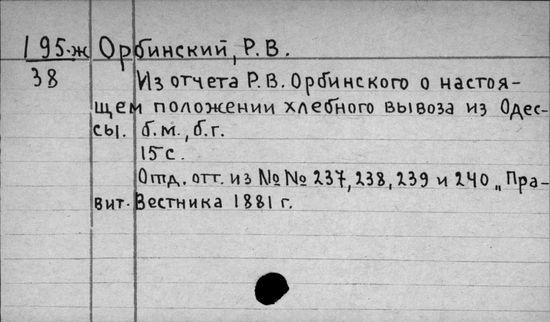 195.ж Орбинский, Р.В.
38 Из отчета Р.В. Орбинского о настоя-
щем положении хлебного вывоза из Одес-
сы. б.м., б.г.
15 с.
Отд. отт. из №№ 237, 238, 239 и 240 „Пра-
вит. Вестника 1881 г.